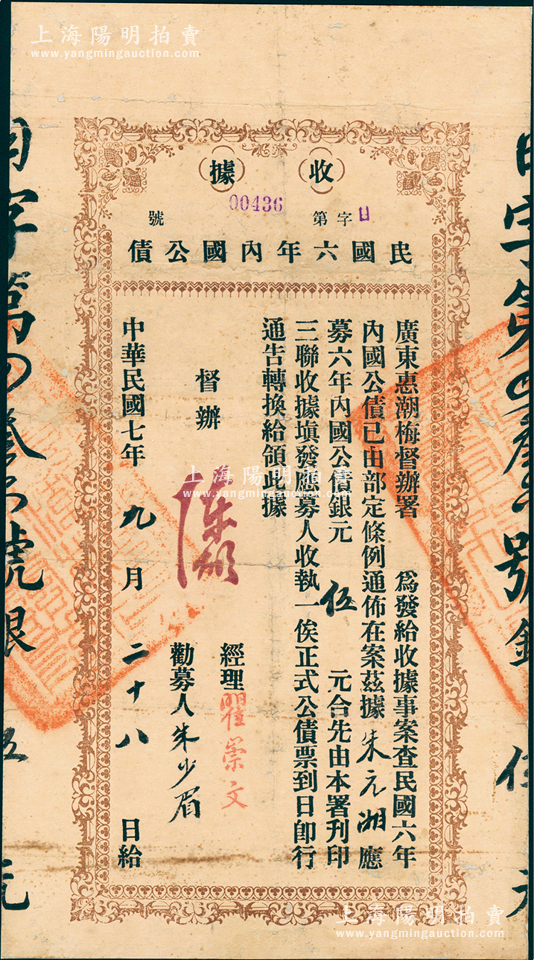 上海陽明拍賣
www.yangmingauction.com
收據
日字第00436號
民國六年內國公債
廣東惠潮梅督辦署 為發給收據事案查民國六年
內國公債已由部定條例通佈在案茲據朱元湘應
募六年內國公債銀元伍元合先由本署刊印
三聯收據填發應募人收執一俟正式公債票到日即行
通告轉換給領此據
督辦
經理瞿崇文
勸募人朱少眉
中華民國七年九月二十八日給
上海陽明拍賣
www.yangmingauction.com
上海陽明拍賣
www.yangmingauction.com